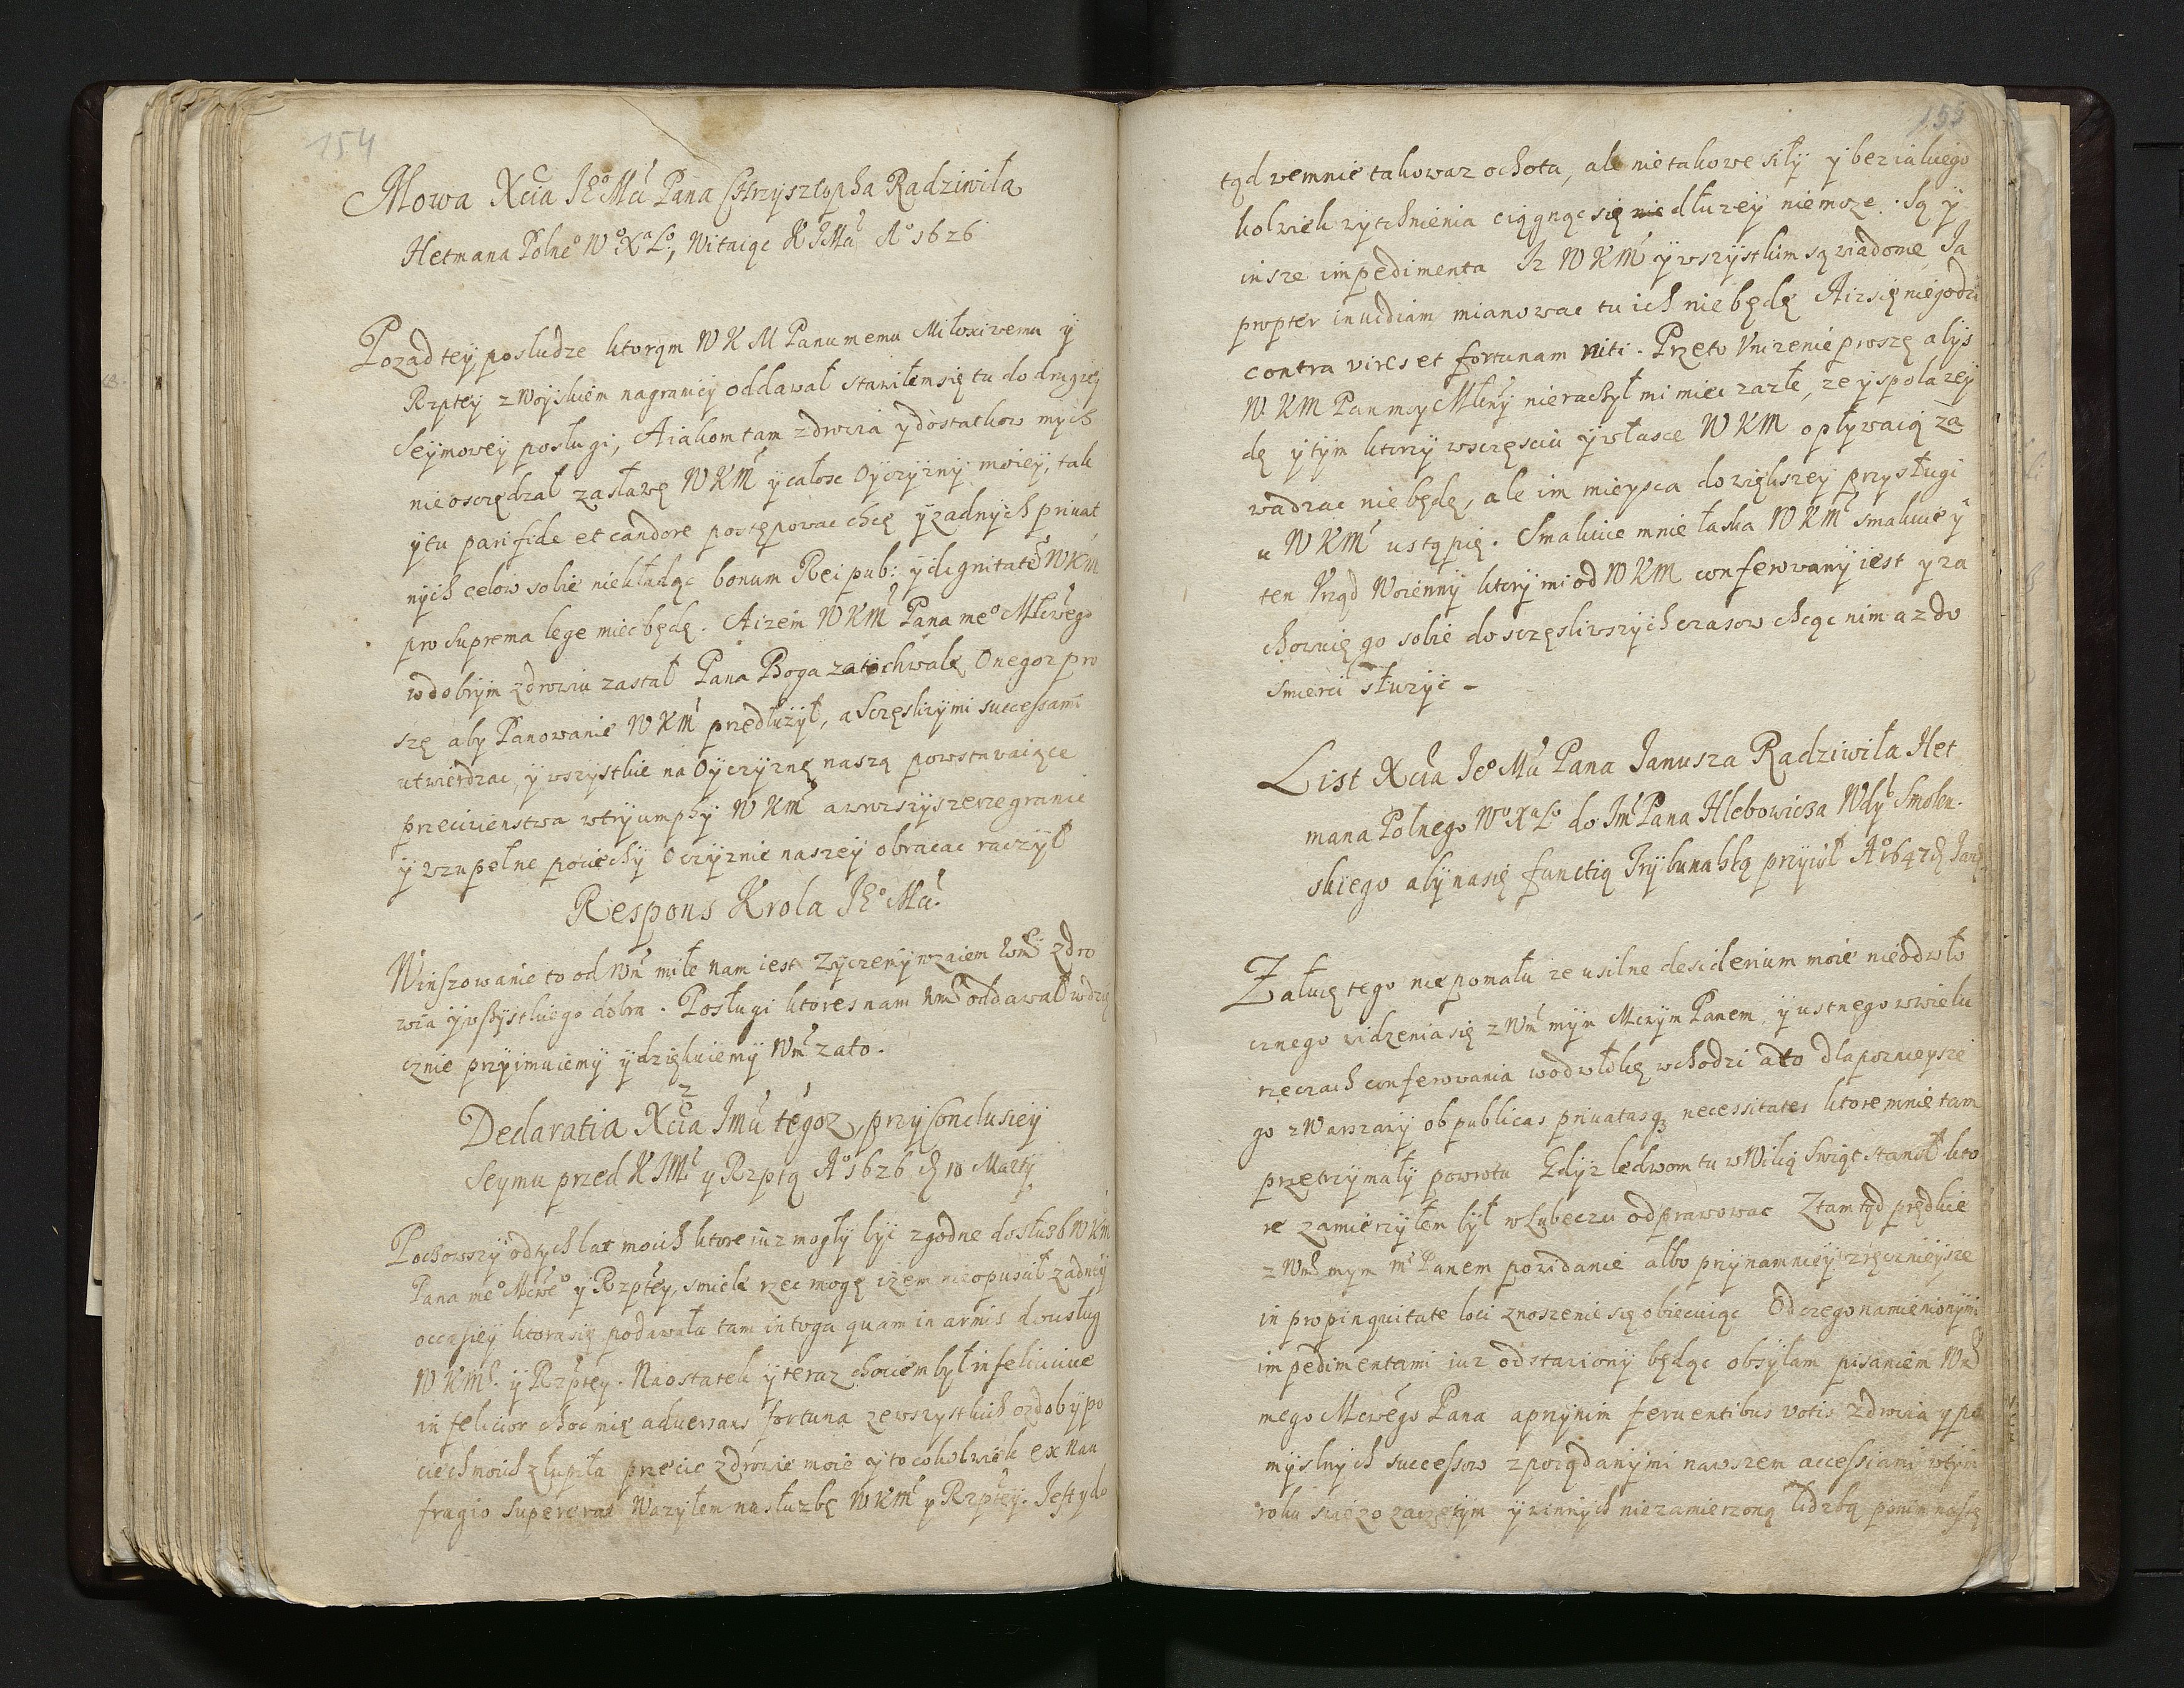 154
Mowa Xcia Jeo Mci Pana Chrzysztopha Radziwiła
Hetmana Polneo Wo Xa Lo, Witaiąc K J Mci Ao 1626
Pozad tey posłudze ktorąm W K M Panu memu Miłosciwemu y
Rzptey z Woyskiem nagranicy oddawał stawiłem się tu do drugiey
Seymowey posługi, A iakom tam zdrowia y dostatkow mych
nieosczędzał za sławę W K Mci y całosc Oyczyzny moiey, tak
y tu pari fide et candore postępowac chcę y zadnych priuat
nych celow sobie niekładąc bonum Rei pub: y dignitatem W K M
pro Suprema lege miec będę. A izem W K Mci Pana meo Mciwego
w dobrym zdrowiu zastał Pana Boga za to chwalę Onegoz pro
szę aby Panowanie W K Mci przedłuzył, a Sczęsliwymi successami
utwierdzac, y wszystkie na Oyczyznę naszą powstawaiące
przeciwienstwa w tryumphy W K Mci a w szyrsze granice
y w zupełne pociechy Oczyznie naszey obracac raczył
Respons Krola Jeo Mci.
Winszowanie to od Wmci miłe nam iest Zyczemy wzaiem Wmci zdro
wia y wszystkiego dobra. Posługi ktores nam Wmc oddawał wdzię
cznie przyimuiemy y dziękuiemy Wmci za to.
2
Declaratia Xcia Jmci tegoz, przy Conclusiey
Seymu przed K J Mcią y Rzptą Ao 1626 d 10 Marty
Pochowszy od tych lat moich ktore iuz mogły byc zgodne do słuzb W K M
Pana meo Mciweo y Rzptey, smiele rzec mogę izem nieopuscił zadney
occasiey ktora się podawała tam in toga quam in armis do usług
W K Mci y Rzptey. Naostatek y teraz chociem był in felici ciue
infelicior choc mię aduersans fortuna ze wszystkich ozdob y po
ciech moich złupiła przecie zdrowie moie y to cokolwiek ex nau
fragio supererat Wazyłem na słuzbę W K Mci y Rzptey. Jest y do
155
tąd we mnie takowaz ochota, ale nie takowe siły y bez iakiego
kolwiek wytchnienia ciągnąc się dłuzey niemoze. Są y
insze impedimenta Jz W K M y wszystkim są wiadome, Ja
propter inuidiam mianowac tu ich nie będę A iz się niegodzi
contra vires et fortunam niti. Przeto Vnizenie proszę abys
W K M Pan moy Mciwy nieraczył mi miec za złe, ze y spolazey
dę y tym ktorzy w sczęsciu y w łasce W K M opływaią za
wadzac nie będę, ale im mieysca do większey przysługi
u W K Mci ustąpię. Smakuie mnie łaska W K Mci smakuie y
ten Vrząd Woienny ktory mi od W K M conferowany iest y za
chowuię go sobie do sczęsliwszych czasow chcąc nim az do
smierci słuzyc -
List Xcia Jeo Mci Pana Janusza Radziwiła Het
mana Polnego Wo Xa Lo do Jmci Pana Hlebowicza Wdy Smolen.
skiego aby na się functią Trybunalską przyiął Ao 1647 d Jan
Załuię tego niepomału ze usilne desiderium moie nieodwło
cznego widzenia się z Wmci mym Mcwym Panem, y ustnego w wielu
rzeczach conferowania w odwłokę wchodzi a to dla poznieysze
go z Warszawy ob publicas priuatasq necessitates ktore mnie tam
przetrzymały powrotu Gdyz ledwom tu w Wilią Swiąt stanął kto
re zamierzyłem był w Lubeczu odprawowac Ztamtąd prędkie
z Wmcią mym mci Panem powidanie albo przynamniey zręcznieysze
in propinquitate loci znoszenie się obiecuiąc Od czego namienionymi
impedimentami iuz odstawiony będąc obsyłam pisaniem Wmci
mego Mciwego Pana a przy nim feruentibus votis zdrowia y po
myslnych successow z poządanymi nawszem accessiami w tym
roku swiezo zaczętym y w innych niezamierzoną lidzbą po nim nastę